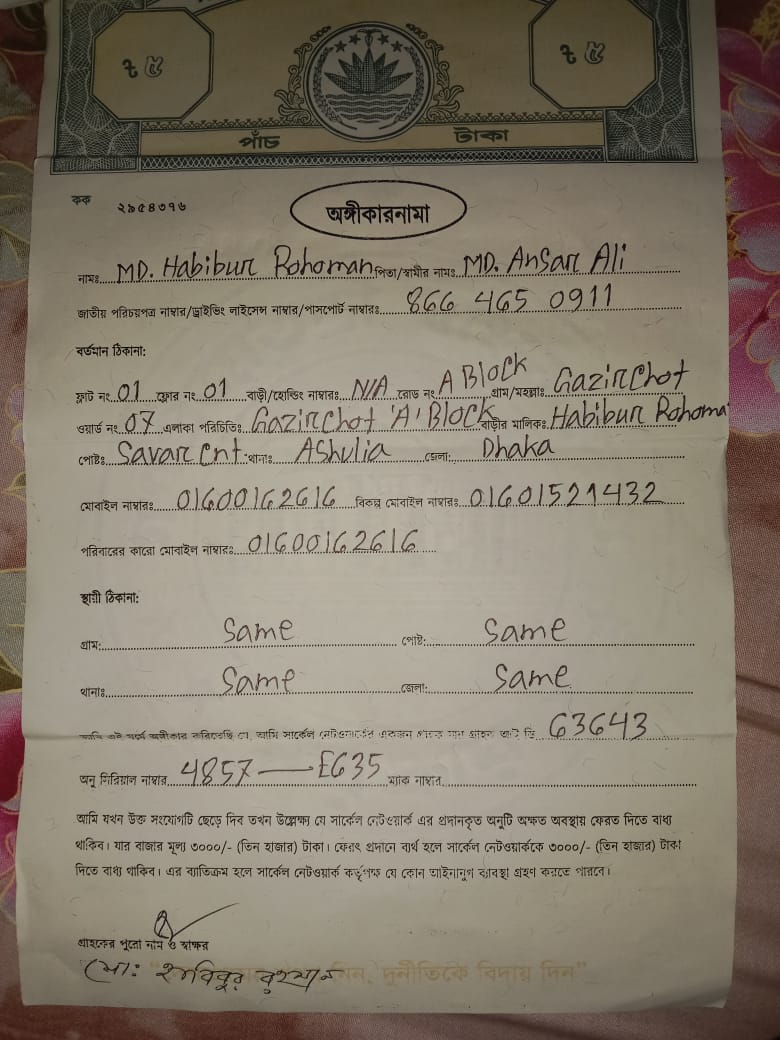 ৳ ৫ ৳ ৫
পাঁচ টাকা
কক ২৯৫৪৩৭৬
অঙ্গীকারনামা
নামঃ MD. Habibur Rohoman পিতা/স্বামীর নামঃ MD. Ansar Ali
জাতীয় পরিচয়পত্র নাম্বার/ড্রাইভিং লাইসেন্স নাম্বার/পাসপোর্ট নাম্বারঃ 866 465 0911
বর্তমান ঠিকানা:
ফ্লাট নং 01 ফ্লোর নং 01 বাড়ী/হোল্ডিং নাম্বারঃ N/A রোড নং A Block গ্রাম/মহল্লাঃ Gazirchot
ওয়ার্ড নং 07 এলাকা পরিচিতিঃ Gazirchot 'A' Block বাড়ীর মালিকঃ Habibur Rohoma
পোষ্টঃ Savar Cnt. থানাঃ Ashulia জেলা: Dhaka
মোবাইল নাম্বারঃ 01600162616 বিকল্প মোবাইল নাম্বারঃ 01601521432
পরিবারের কারো মোবাইল নাম্বারঃ 01600162616
স্থায়ী ঠিকানা:
গ্রাম: Same পোষ্ট: Same
থানাঃ Same জেলা: Same
আমি এই মর্মে অঙ্গীকার করিতেছি যে, আমি সার্কেল নেটওয়ার্কের একজন গ্রাহক যার গ্রাহক আই ডি 63643
অনু সিরিয়াল নাম্বার 4857 — E635 ম্যাক নাম্বার
আমি যখন উক্ত সংযোগটি ছেড়ে দিব তখন উল্লেক্ষ্য যে সার্কেল নেটওয়ার্ক এর প্রদানকৃত অনুটি অক্ষত অবস্থায় ফেরত দিতে বাধ্য
থাকিব। যার বাজার মূল্য ৩০০০/- (তিন হাজার) টাকা। ফেরৎ প্রদানে ব্যর্থ হলে সার্কেল নেটওয়ার্ককে ৩০০০/- (তিন হাজার) টাকা
দিতে বাধ্য থাকিব। এর ব্যাতিক্রম হলে সার্কেল নেটওয়ার্ক কর্তৃপক্ষ যে কোন আইনানুগ ব্যাবস্থা গ্রহণ করতে পারবে।
গ্রাহকের পুরো নাম ও স্বাক্ষর
মো: হাবিবুর রহমান
নিন, দুর্নীতিকে বিদায় দিন"